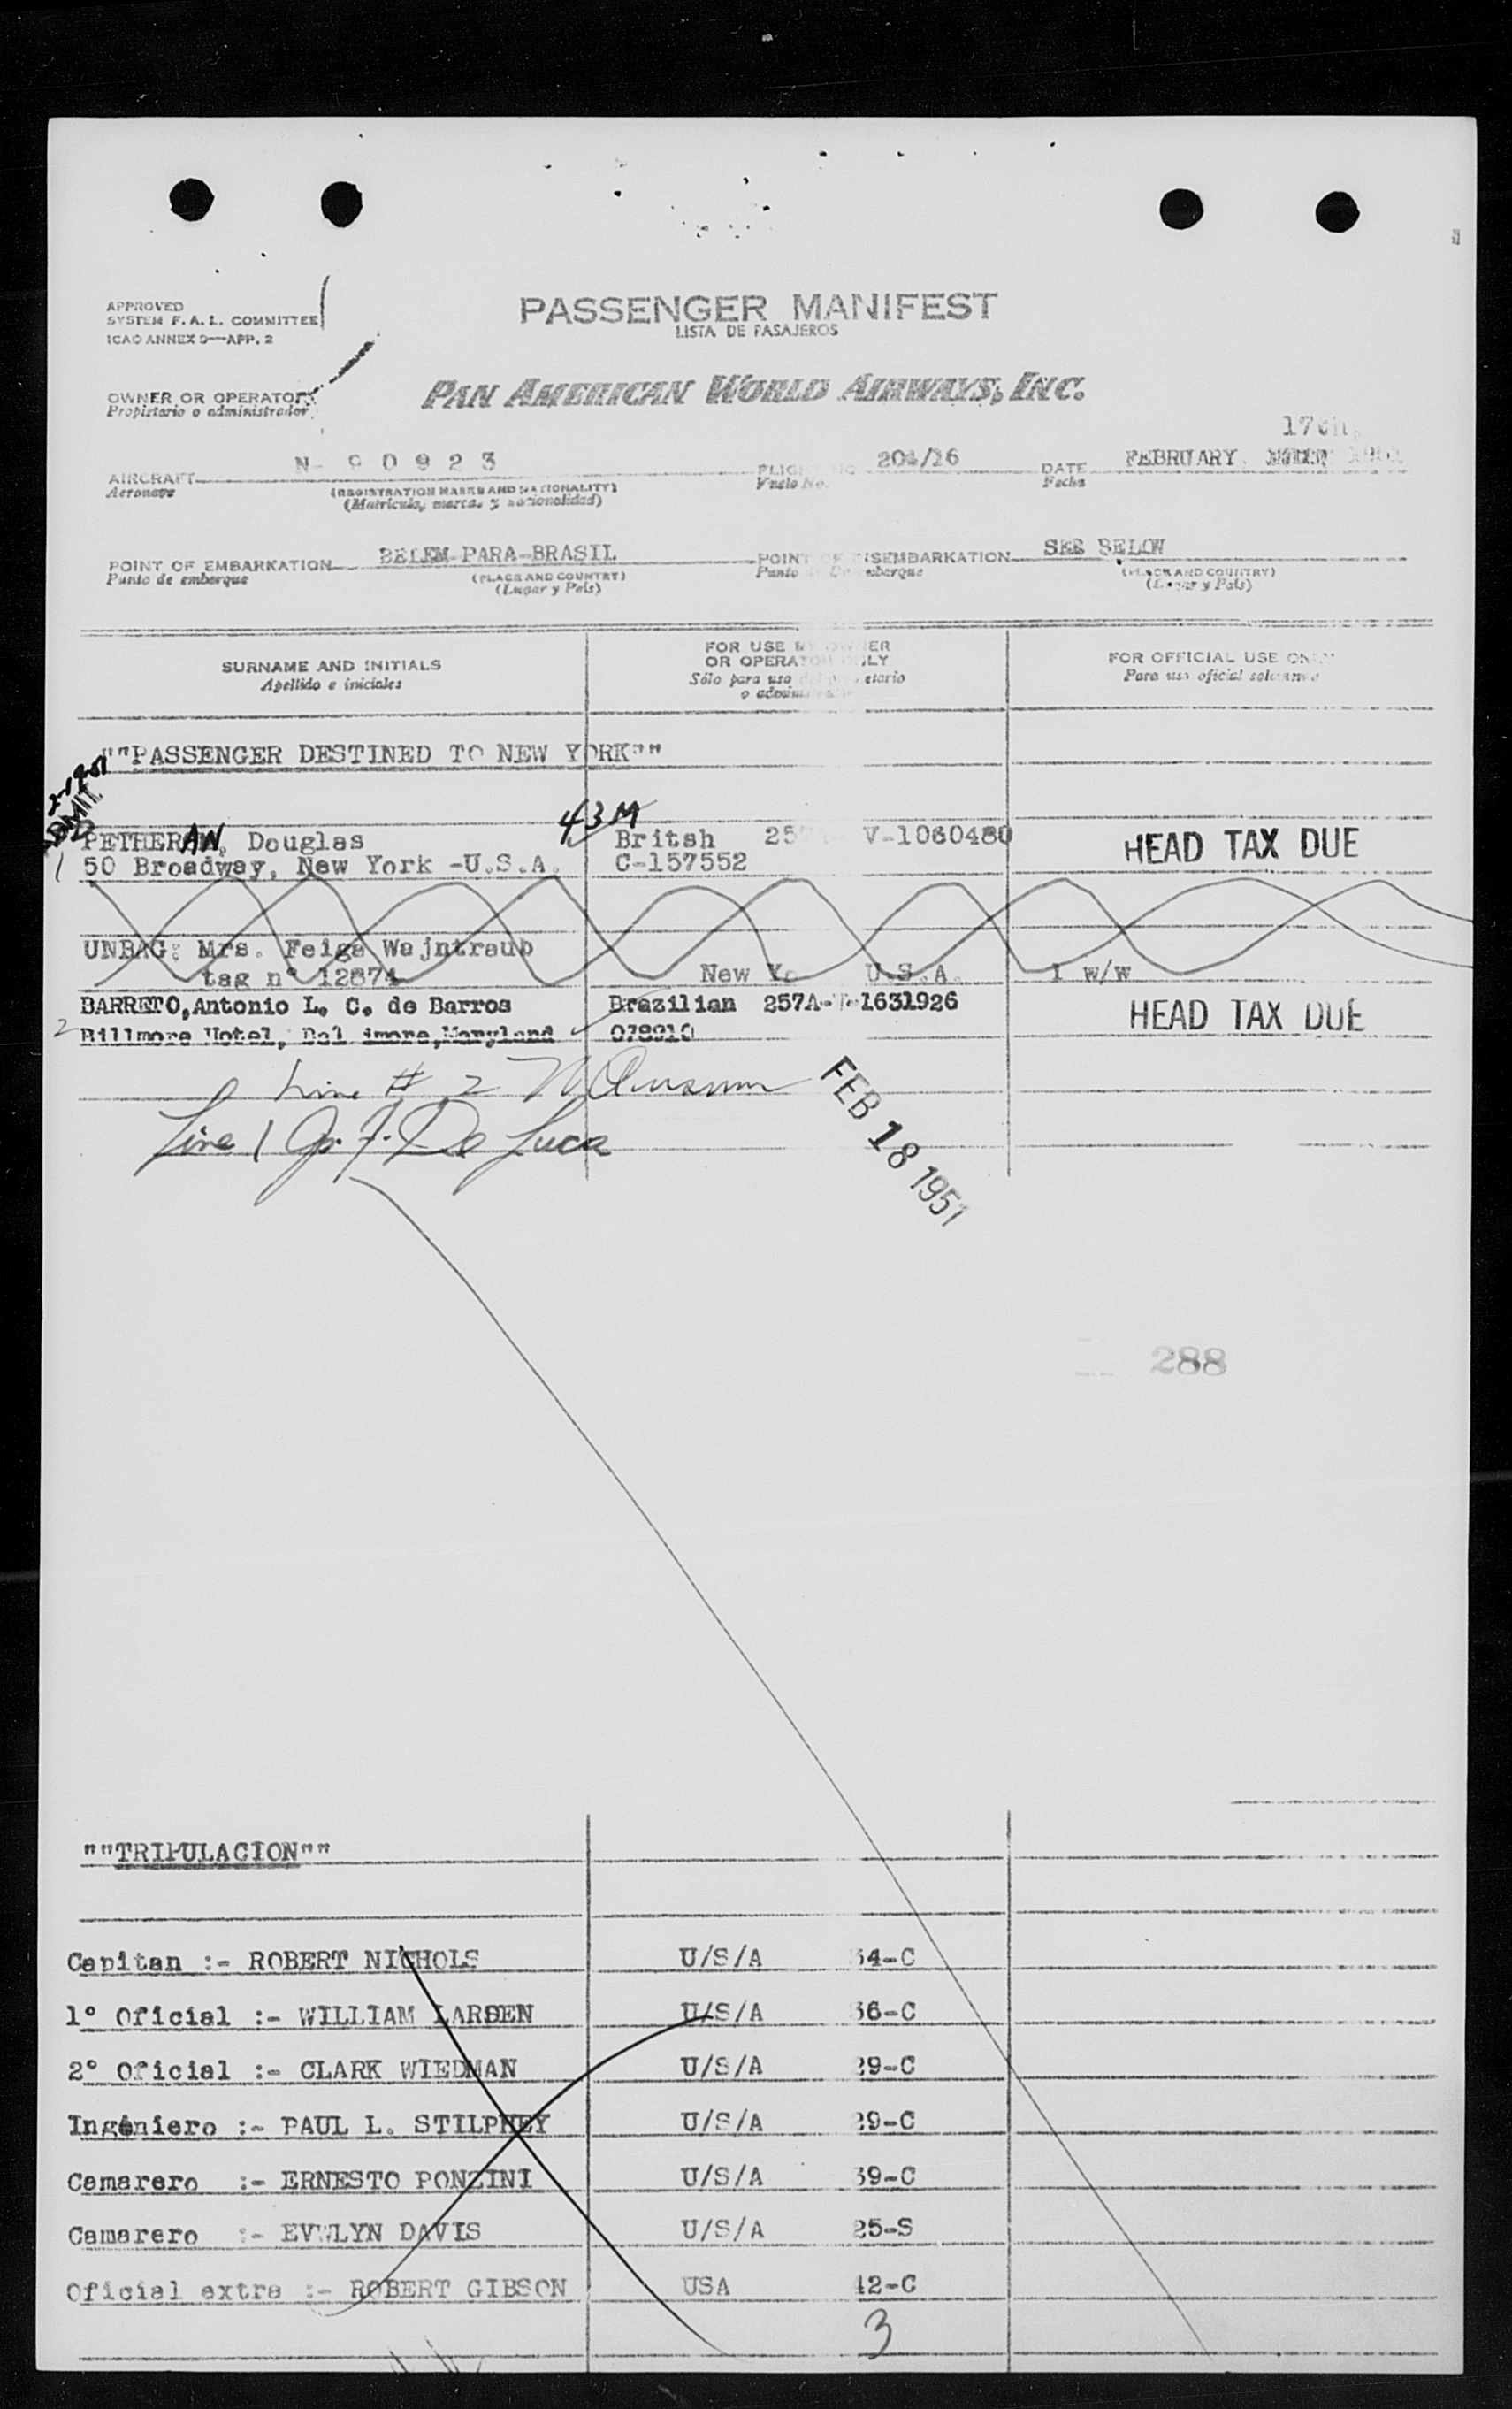 APPROVED
SYSTEM F. A. L. COMMITTEE
ICAO ANNEX 9—APP. 2
PASSENGER MANIFEST
LISTA DE PASAJEROS
OWNER OR OPERATOR
Propietario o administrador
PAN AMERICAN WORLD AIRWAYS, INC.
17th
AIRCRAFT N- 9 0 9 2 3 204/16 DATE FEBRUARY
Aeronave (REGISTRATION MARKS AND NATIONALITY) Vuelo No. Fecha
(Matricula, marcas y nacionalidad)
POINT OF EMBARKATION BELEM-PARA-BRASIL POINT OF DISEMBARKATION SEE BELOW
Punto de embarque (PLACE AND COUNTRY) Punto (PLACE AND COUNTRY)
(Lugar y País) (Lugar y País)
SURNAME AND INITIALS FOR USE BY OWNER OR OPERATOR ONLY FOR OFFICIAL USE ONLY
Apellido e iniciales Sólo para uso Para uso oficial solamente
""PASSENGER DESTINED TO NEW YORK""
ADMIT 43 M
PETHERAN, Douglas Britsh V-1060480 HEAD TAX DUE
1 50 Broadway, New York -U.S.A. C-157552
UNBAG: Mrs. Feiga Wajntraub
tag nº 12874 New Yo U.S.A. 1 w/w
BARRETO,Antonio L. C. de Barros Brazilian 257A- -1631926 HEAD TAX DUE
2 Billmore Hotel, Bal imore,Maryland 078910
Line # 2
Line 1 De Luca
FEB 18 1951
288
""TRIPULACION""
Capitan :- ROBERT NICHOLS U/S/A 34-C
1º Oficial :- WILLIAM LARSEN U/S/A 36-C
2º Oficial :- CLARK WIEDMAN U/S/A 29-C
Ingéniero :- PAUL L. STILPHEY U/S/A 29-C
Camarero :- ERNESTO PONZINI U/S/A 39-C
Camarero :- EVELYN DAVIS U/S/A 25-S
Oficial extra :- ROBERT GIBSON USA 42-C
3